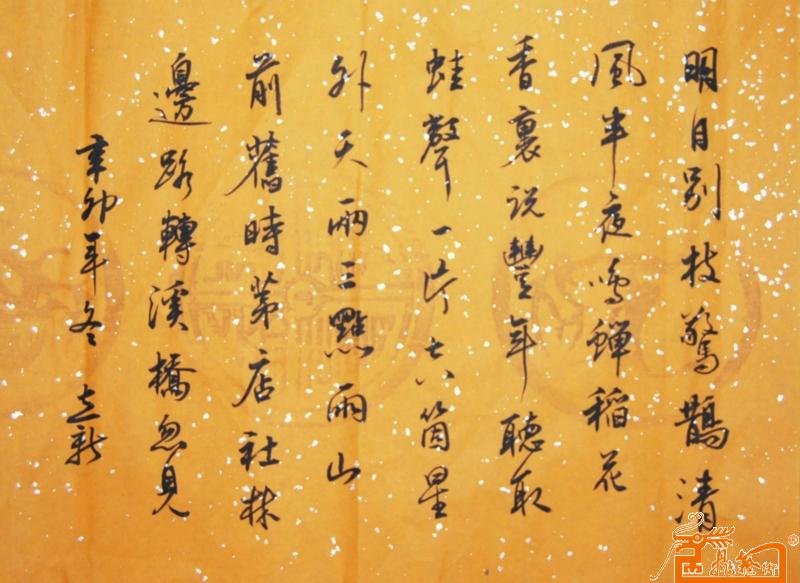 明月别枝驚鵲清
風半夜鳴蟬稻花
香裏説豐年聽取
蛙聲一片七八箇星
外天兩三點雨山
前舊時茅店社林
邊路轉溪橋忽見
辛卯年冬 立新